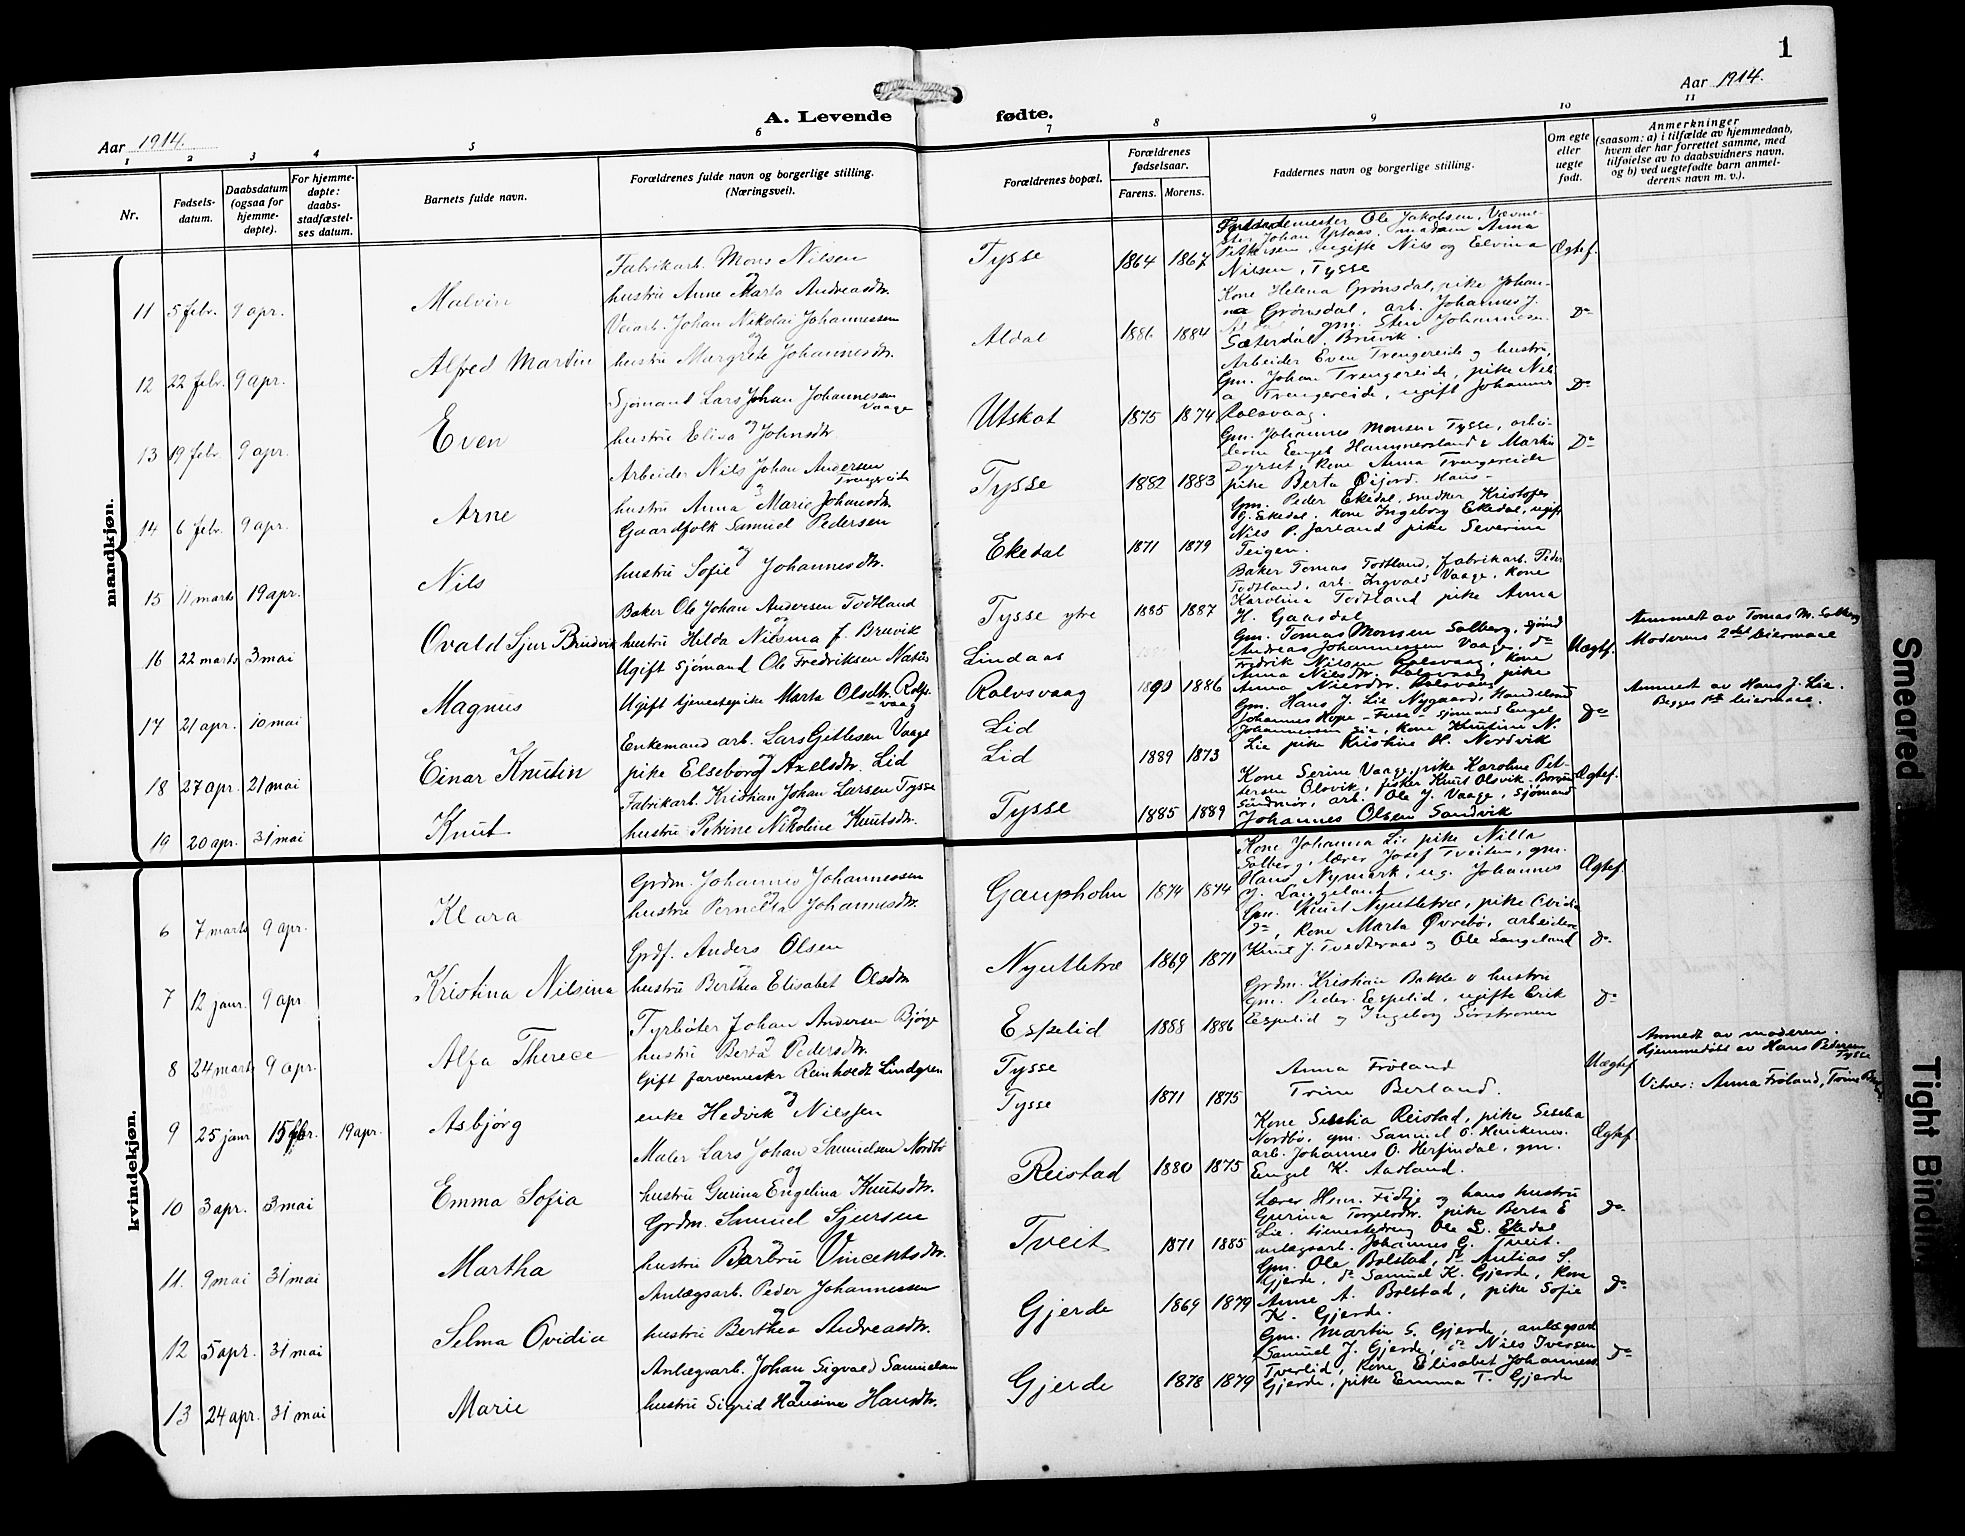 1
Aar 1914.
Aar 1914.
A. Levende fødte.
1 2 3 4 5 6 7 8 9 10 11
Nr.
Fødsels-
datum.
Daabsdatum
(ogsaa for
hjemme-
døpte).
For hjemme-
døpte:
daabs-
stadfæstel-
ses datum.
Barnets fulde navn.
Forældrenes fulde navn og borgerlige stilling.
(Næringsvei).
Forældrenes bopæl.
Forældrenes
fødselsaar.
Farens. Morens.
Faddernes navn og borgerlige stilling.
Om egte
eller
uegte
født.
Anmerkninger
(saasom: a) i tilfælde av hjemmedaab,
hvem der har forrettet samme, med
tilføielse av to daabsvidners navn,
og b) ved uegtefødte barn anmel-
derens navn m. v.).
mandkjøn.
11 5 febr. 9 apr. Malvin
Fabrikarb. Mons Nilsen
og
hustru Anne Marta Andreasdtr.
Tysse 1864 1867
Ole Jakobsen, Vævme-
Johan madam Anna
ugifte Nils og Elvina
Nilsen, Tysse
Ægtef.
12 22 febr. 9 apr. Alfred Martin
Veiarb. Johan Nikolai Johannessen
og
hustru Margrete Johannesdtr.
Aldal 1886 1884
Kone Helena Grønsdal, pike Johan-
na Grønsdal, arb. Johannes J.
gm. Sten Johannesen
Sæterdal, Bruvik.
Do
13 19 febr. 9 apr. Even
Sjømand Lars Johan Johannesen
Vaage
og
hustru Elisa Johnsdtr.
Utskot 1875 1874
Arbeider Even Trengereide og hustru,
Gm. Johan Trengereide, pike Nils-
a Trengereide, ugift Johannes
Rolvsvaag.
Do
14 6 febr. 9 apr. Arne
Arbeider Nils Johan Andersen
Trengereide
og
hustru Anna Marie Johansdtr.
Tysse 1882 1883
Gm. Johannes Monsen Tysse, arbei-
derne Engel Hammersland & Martin
Dyrset, Kone Anna Trengereide
pike Berta Øijord.
Do
15 11 marts 19 apr. Nils
Gaardfolk Samuel Pedersen
og
hustru Sofie Johannesdtr.
Ekedal 1871 1879
Gm. Peder Ekedal, snedker Kristofer
J. Ekedal. Kone Ingeborg Ekedal, ugift
Nils P. Jarland pike Severina
Teigen.
16 22 marts 3 mai Ovald Sjur Bruvik
Baker Ole Johan Andersen Todtland
og
hustru Hilda Nilsina f. Bruvik
Tysse ytre 1885 1887
Baker Tomas Todtland, fabrikarb. Peder
Todtland, arb. Ingvald Vaage, Kone
Karolina Todtland pike Anna
H. Gaasdal
17 21 apr. 10 mai Magnus
Ugift sjømand Ole Fredriksen Natås
Ugift tjenestepike Marta Olsdtr. Rolfs-
vaag
Lindaas
Rolvsvaag 1890 1886
Gm. Tomas Monsen Solberg, sjømd
Andreas Johannessen Vaage, do
Fredrik Nilsen Rolsvaag, Kone
Anna Nilsdtr. Rolsvaag pike
Uægtef.
Anmeldt av Tomas M. Solberg
Moderens 2det leiermaal
18 27 apr. 21 mai Einar Knutin
Enkemand arb. Lars Getlesen Vaage
og
pike Elseborg Axelsdtr. Lid
Lid
Lid 1889 1873
Gm. Hans J. Lie Nygaard, Handelsmd
Johannes Hope - Fuse - sjømand Engel
Johannessen Lie, Kone Knutina N.
Lie pike Kristine H. Nordvik
Do
Anmeldt av Hans J. Lie.
Begges 1ste leiermaal.
19 20 apr. 31 mai Knut
Fabrikarb. Kristian Johan Larsen Tysse
og
hustru Petrine Nikoline Knutsdtr.
Tysse 1885 1889
Kone Serine Vaage, pike Karoline Pet-
ersen Olsvik, fisker Knut Olsvik - Borgun
Søndmør, arb. Ole J. Vaage, sjømand
Johannes Olsen Sandvik
Ægtef.
kvindekjøn.
6 7 marts 9 apr. Klara
Grdm. Johannes Johannessen
og
hustru Pernella Johannesdtr.
Gaupholm 1874 1874
Kone Johanna Lie pike Nilla
Solberg, lærer Josef Tveiten, gm.
Hans Nymark, ug. Johannes
J. Langeland
Ægtef.
7 12 janr. 9 apr Kristina Nilsina
Grdf. Anders Olsen
og
hustru Berthea Elisabet Olsdtr
Nyutletræ 1869 1871
Gm. Knut Nyutletræ, pike Ovidia
do, Kone Marta Øvrebø, arbeidere
Knut J. Tvedteraas og Ole Langeland
do
8 24 marts 9 apr. Alfa Therece
Fyrbøter Johan Andersen Bjørge
og
hustru Berta Pedersdtr.
Espelid 1888 1886
Grdm. Kristian Bakke & hustru
gm. Peder Espelid, ugifte Erik
Espelid og Ingeborg Sørstrønen
do
9 25 janr 15 febr. 19 apr. Asbjørg
Gift farvemester Reinholdt Lindgren
og
enke Hedvik Nilssen
Tysse
Tysse 1871 1875
Anna Frøland
Trine Berland.
Uægtef
Anmeldt av moderen.
Hjemmedøbt av Hans Pedersen
Tysse
Vitner: Anna Frøland, Trine
10 3 apr. 3 mai Emma Sofia
Maler Lars Johan Samuelsen Nordbø
og
hustru Gurina Engelina Knutsdtr.
Reistad 1880 1875
Kone Sessha Reistad, pike Sessha
Nordbø, gm. Samuel O. Henriknes.
arb. Johannes O. Herfindal, gm.
Engel K. Aadland.
Ægtef
11. 9 mai 31 mai Martha
Grdm. Samuel Sjursen
og
hustru Barbru Vincentsdtr.
Tveit 1871 1885
Lærer Hans Fidtje og hans hustru
Gurina Torgersdtr. pike Berta E
Lie. tjenestedreng Ole L. Ekedal
anlægsarb. Johannes G. Tveit.
Do
12 5 apr. 31 mai Selma Ovidia
Anlægsarb. Peder Johannessen
og
hustru Berthea Andreasdtr.
Gjerde 1869 1879
Gm. Ole Bolstad, do Antias S.
Gjerde, do Samuel K. Gjerde, Kone
Anne A. Bolstad, pike Sofie
K. Gjerde.
Do
13 24 apr. 31 mai Marie
Anlægsarb. Johan Sigvald Samuelsen
og
hustru Sigrid Hansine Hansdtr.
Gjerde 1878 1879
Gm. Martin S. Gjerde, anlægsarb
Samuel J. Gjerde, do Nils Iversen
Tverlid, Kone Elisabet Johannes
Gjerde, pike Emma T. Gjerde
Do
Smeared
Tight Bindin